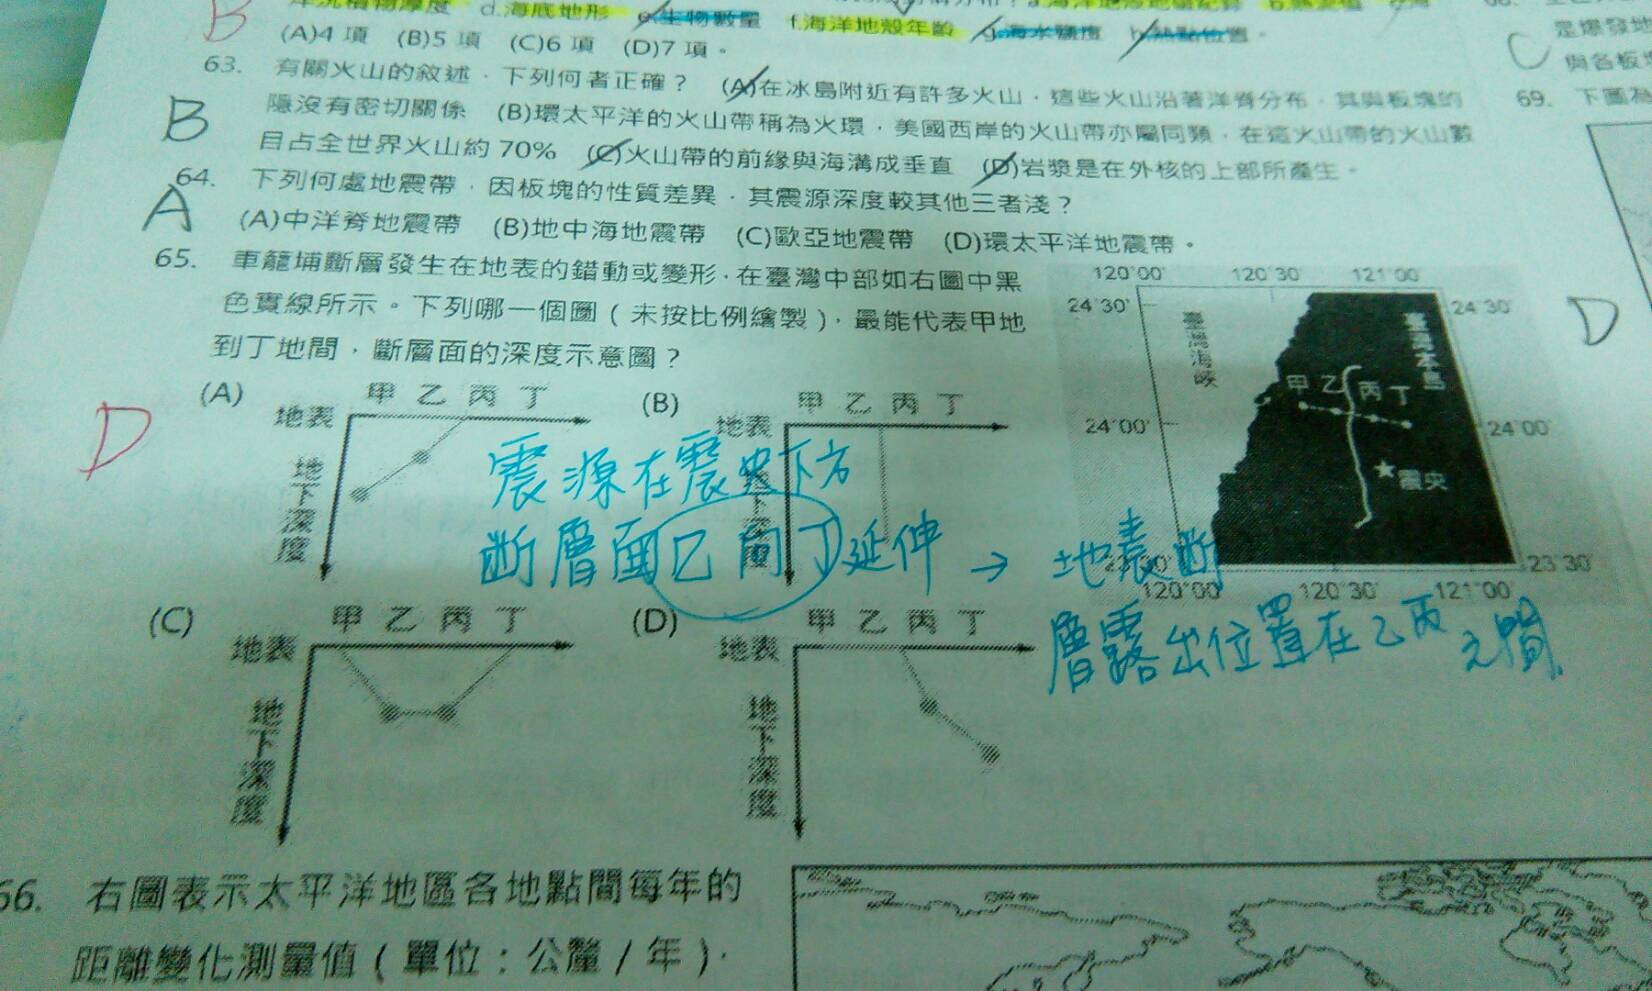 d.海底地形 e.生物數量 f.海洋地殼年齡 g.海水鹽度 h.熱點位置。
B
(A)4 項 (B)5 項 (C)6 項 (D)7 項。
63. 有關火山的敘述，下列何者正確？ (A)在冰島附近有許多火山，這些火山沿著洋脊分布，其與板塊的
隱沒有密切關係 (B)環太平洋的火山帶稱為火環，美國西岸的火山帶亦屬同類，在這火山帶的火山數
目占全世界火山約 70% (C)火山帶的前緣與海溝成垂直 (D)岩漿是在外核的上部所產生。
B
64. 下列何處地震帶，因板塊的性質差異，其震源深度較其他三者淺？
(A)中洋脊地震帶 (B)地中海地震帶 (C)歐亞地震帶 (D)環太平洋地震帶。
A
65. 車籠埔斷層發生在地表的錯動或變形，在臺灣中部如右圖中黑
色實線所示。下列哪一個圖（未按比例繪製），最能代表甲地
到丁地間，斷層面的深度示意圖？
D
(A) 甲 乙 丙 丁
地表
地下深度
(B) 甲 乙 丙 丁
地表
地下深度
(C) 甲 乙 丙 丁
地表
地下深度
(D) 甲 乙 丙 丁
地表
地下深度
120°00' 120°30' 121°00'
24°30' 24°30'
臺灣海峽
臺灣本島
甲 乙 丙 丁
24°00' 24°00'
震央
23°30' 23°30'
120°00' 120°30' 121°00'
震源在震央下方
斷層面乙向丁延伸 → 地表斷
層露出位置在乙丙之間
66. 右圖表示太平洋地區各地點間每年的
距離變化測量值（單位：公釐／年），
是爆發地
C
與各板
69. 下圖為
D